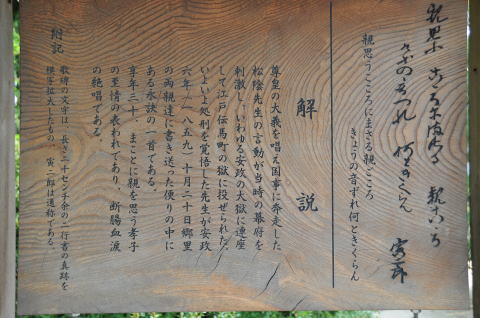 親思ふこころにまさる親ごころ
けふの音つれ何ときくらん
寅二郎
親思うこころにまさる親ごころ
きょうの音ずれ何ときくらん
解説
尊皇の大義を唱え国事に奔走した
松陰先生の言動が当時の幕府を
刺激し、いわゆる安政の大獄に連座
して江戸伝馬町の獄に投ぜられた。
いよいよ処刑を覚悟した先生が安政
六年(一八五九)十月二十日郷里
の両親達に書き送った便りの中に
ある永訣の一首である。
享年三十、まことに親を思う孝子
の至情の表われであり、断腸血涙
の絶唱である。
附記
歌碑の文字は、長さ二十センチ余の二行書の真跡を
模写拡大したもの、寅二郎は通称である。